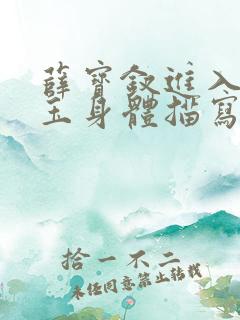 薛寶釵進入
玉身體描寫
拾一不二
未經同意禁止轉載